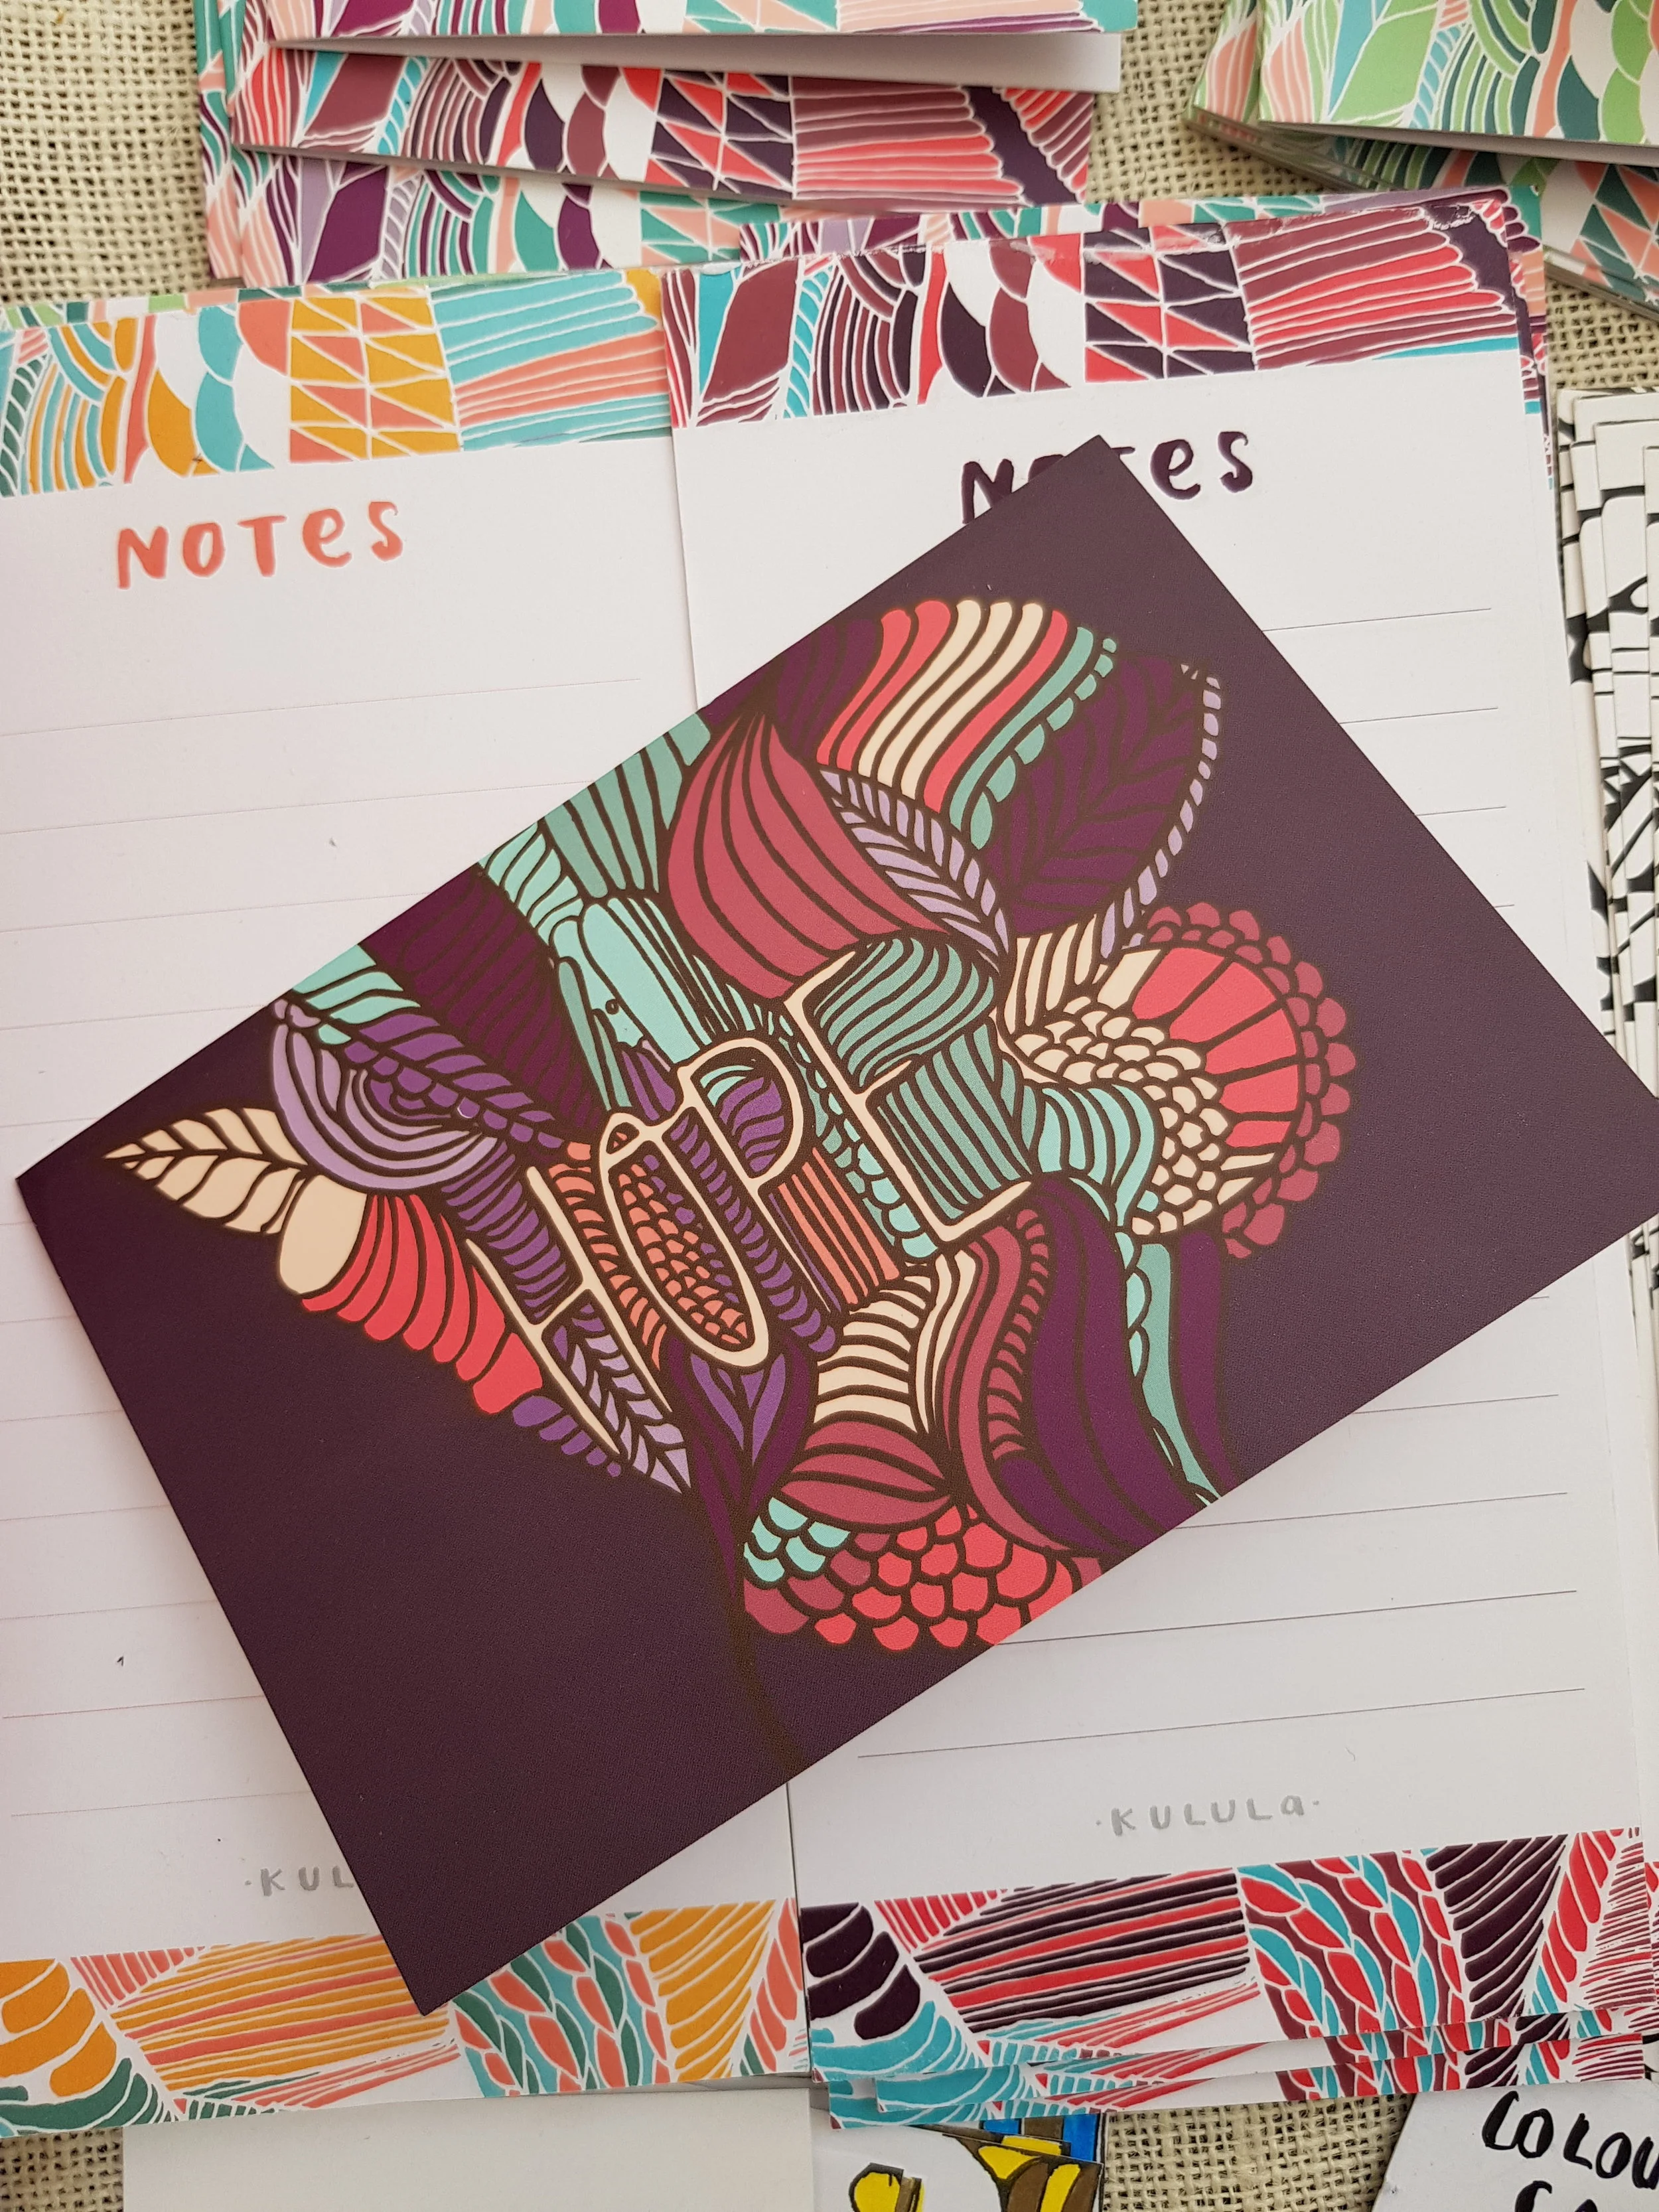 NOTes
NOTes
HOPE
·KULULa·
·KUL
COLOU